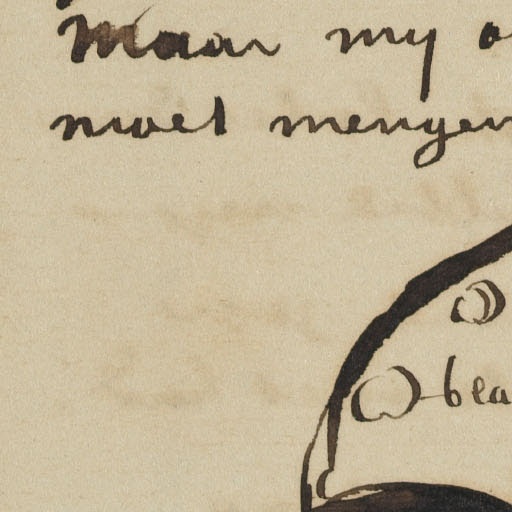 Maar my
moet mengen
bla